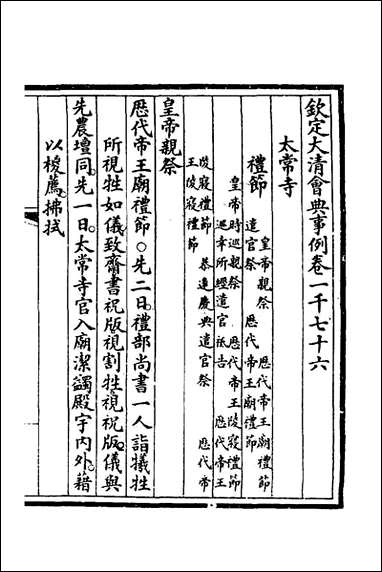 欽定大清會典事例卷一千七十六
太常寺
禮節
皇帝親祭 歷代帝王廟禮節
遣官祭 歷代帝王廟禮節
皇帝時巡親祭 歷代帝王陵寢禮節
巡幸所經遣官祇告 歷代帝王
陵寢禮節 恭遇慶典遣官祭 歷代帝
王陵寢禮節
皇帝親祭
歷代帝王廟禮節○先二日禮部尚書一人詣犧牲
所視牲如儀致齋書祝版視割牲視祝版儀與
先農壇同先一日太常寺官入廟潔蠲殿宇內外藉
以椶薦拂拭